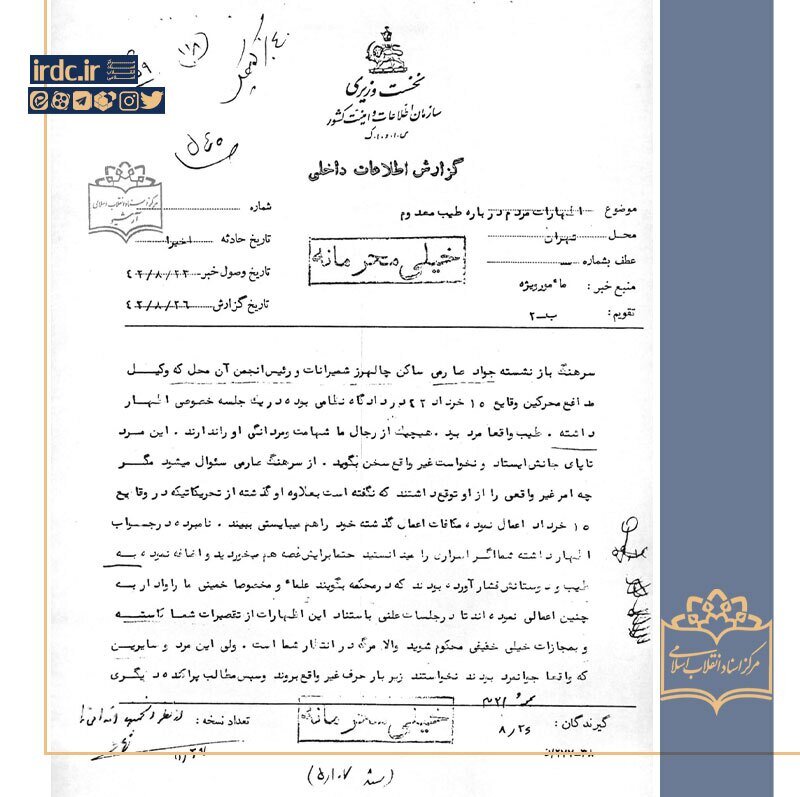 irdc.ir
نخست وزیری
سازمان اطلاعات و امنیت کشور
س.ا.و.ا.ک
گزارش اطلاعات داخلی
مرکز اسناد انقلاب اسلامی
آرشیو
موضوع اظهارات مردم درباره طیب معدوم
شماره
محل تهران
تاریخ حادثه اخیرا
عطف بشماره
تاریخ وصول خبر ۴۲/۸/۲۳
منبع خبر: مأمور ویژه
تاریخ گزارش ۴۲/۸/۲۶
تقویم: ب-۲
خیلی محرمانه
سرهنگ باز نشسته جواد عارمی ساکن چالهرز شمیرانات و رئیس انجمن آن محل که وکیل
مدافع محرکین وقایع ۱۵ خرداد ۴۲ در دادگاه نظامی بوده در یک جلسه خصوصی اظهار
داشته . طیب واقعا مرد بود . هیچیک از رجال ما شهامت و مردانگی او را ندارند . این مرد
تا پای جانش ایستاد و نخواست غیر واقع سخن بگوید . از سرهنگ عارمی سئوال میشود مگر
چه امر غیر واقعی را از او توقع داشتند که نگفته است بعلاوه او گذشته از تحریکاتیکه در وقایع
۱۵ خرداد اعمال نموده مکافات اعمال گذشته خود را هم میبایستی ببیند . نامبرده در جواب
اظهار داشته شما اگر اسراری را میدانستید حتما برایش غصه هم میخوردید و اضافه نموده به
طیب و دوستانش فشار آورده بودند که در محکمه بگویند علماء و مخصوصا خمینی ما را وادار به
چنین اعمالی نموده اند تا در جلسات علنی باستناد این اظهارات از تقصیرات شما کاسته
و بمجازات خیلی خفیفی محکوم شوید والا مرگ در انتظار شما است . ولی این مرد و سایرین
که واقعا جوانمرد بودند نخواستند زیر بار حرف غیر واقع بروند و سپس مطالب پراکنده دیگری
گیرندگان:
۸/۲۶
خیلی محرمانه
تعداد نسخه:
مرکز اسناد انقلاب اسلامی